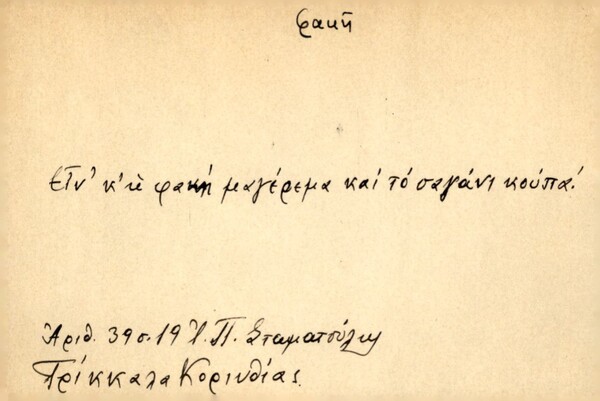 φακῆ
Εἶν' κ' ἡ φακή μαγέρεμα καί τό σαγάνι κούπα!
Ἀριθ. 39 σ. 19 Ἰ. Π. Σταματούλη
Τρίκκαλα Κορινθίας.